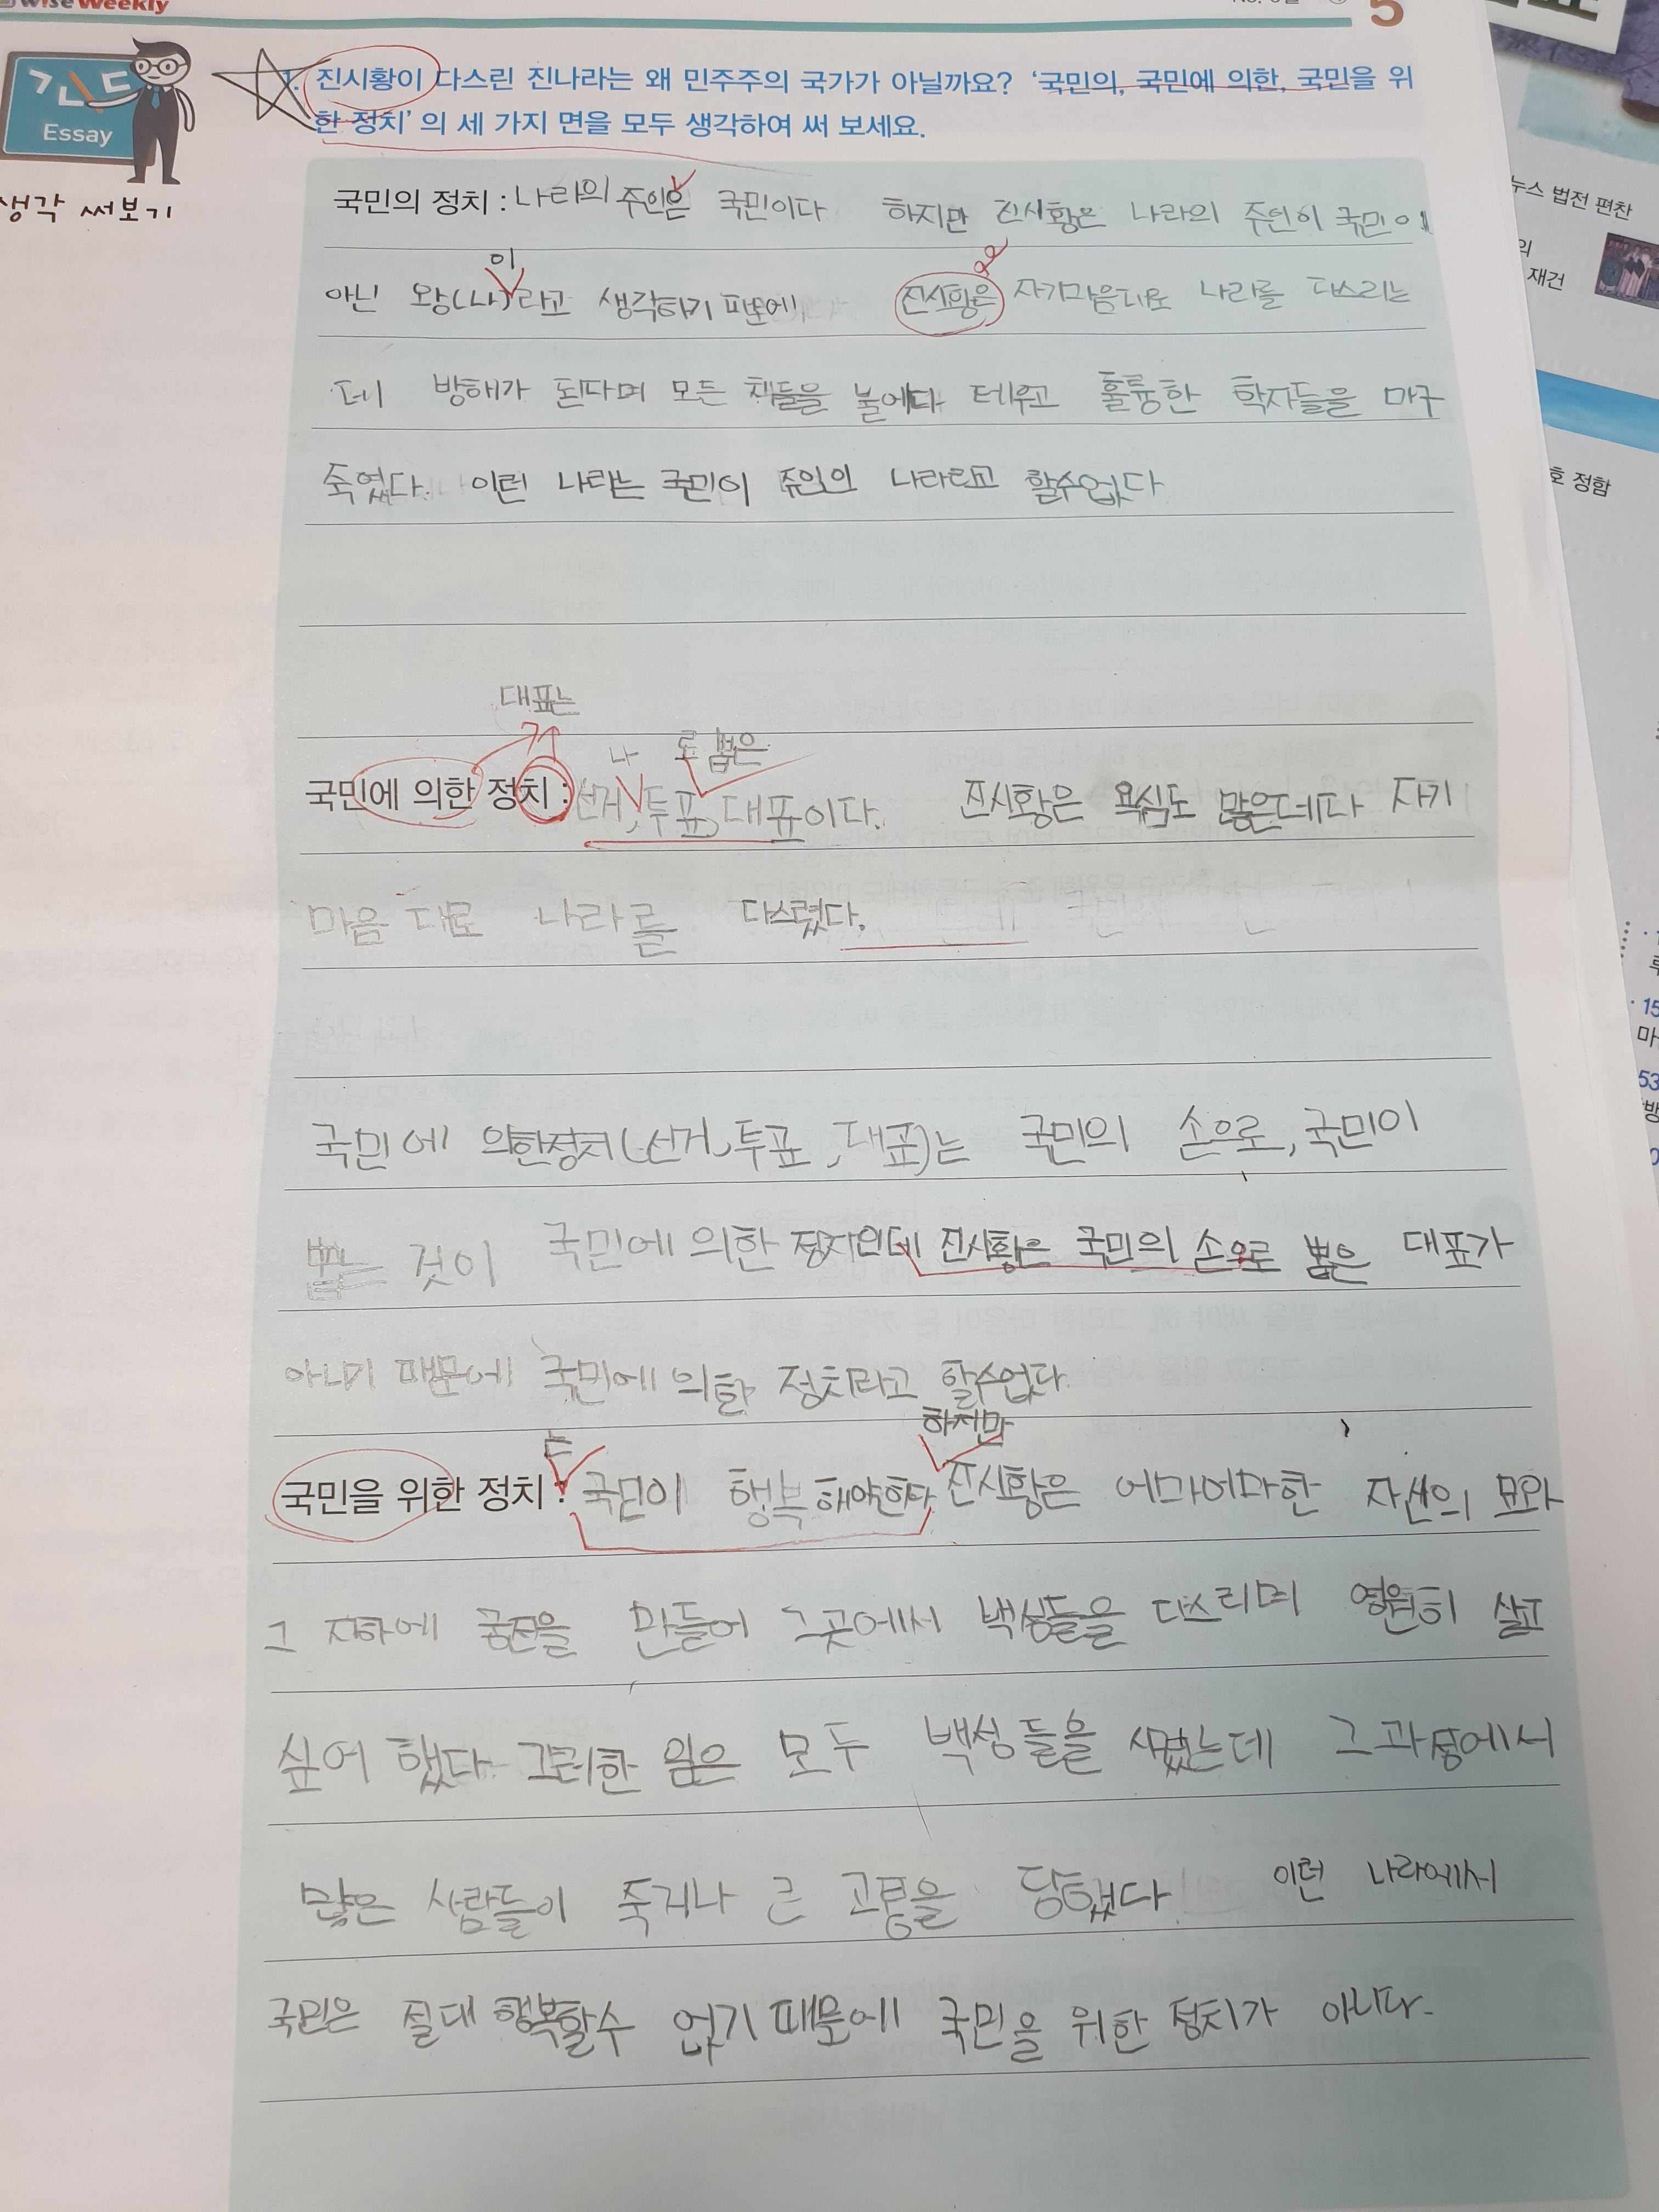 wise Weekly
5
긴느드
Essay
생각 써보기
1. 진시황이 다스린 진나라는 왜 민주주의 국가가 아닐까요? ‘국민의, 국민에 의한, 국민을 위
한 정치’의 세 가지 면을 모두 생각하여 써 보세요.
국민의 정치 : 나라의 주인은 국민이다 하지만 진시황은 나라의 주인이 국민이
이
아닌 왕(나)라고 생각하기 때문에 진시황은 자기마음대로 나라를 다스리는
데 방해가 된다며 모든 책들을 불에다 태우고 훌륭한 학자들을 마구
죽였다. 이런 나라는 국민이 주인인 나라라고 할수없다
대표는
나 로 뽑은
국민에 의한 정치 : 선거, 투표, 대표이다. 진시황은 욕심도 많은데다 자기
마음 대로 나라를 다스렸다.
국민에 의한정치(선거, 투표, 대표)는 국민의 손으로, 국민이
뽑는 것이 국민에 의한 정치인데 진시황은 국민의 손으로 뽑은 대표가
아니기 때문에 국민에 의한 정치라고 할수없다.
는 하지만
국민을 위한 정치 : 국민이 행복 해야한다 진시황은 어마어마한 자신의 묘와
그 지하에 궁전을 만들어 그곳에서 백성들을 다스리며 영원히 살고
싶어 했다. 그러한 일은 모두 백성들을 시켰는데 그과정에서
많은 사람들이 죽거나 큰 고통을 당했다 이런 나라에서
국민은 절대 행복할수 없기 때문에 국민을 위한 정치가 아니다.
뉴스 법전 편찬
의
재건
호 정함
15
마
53